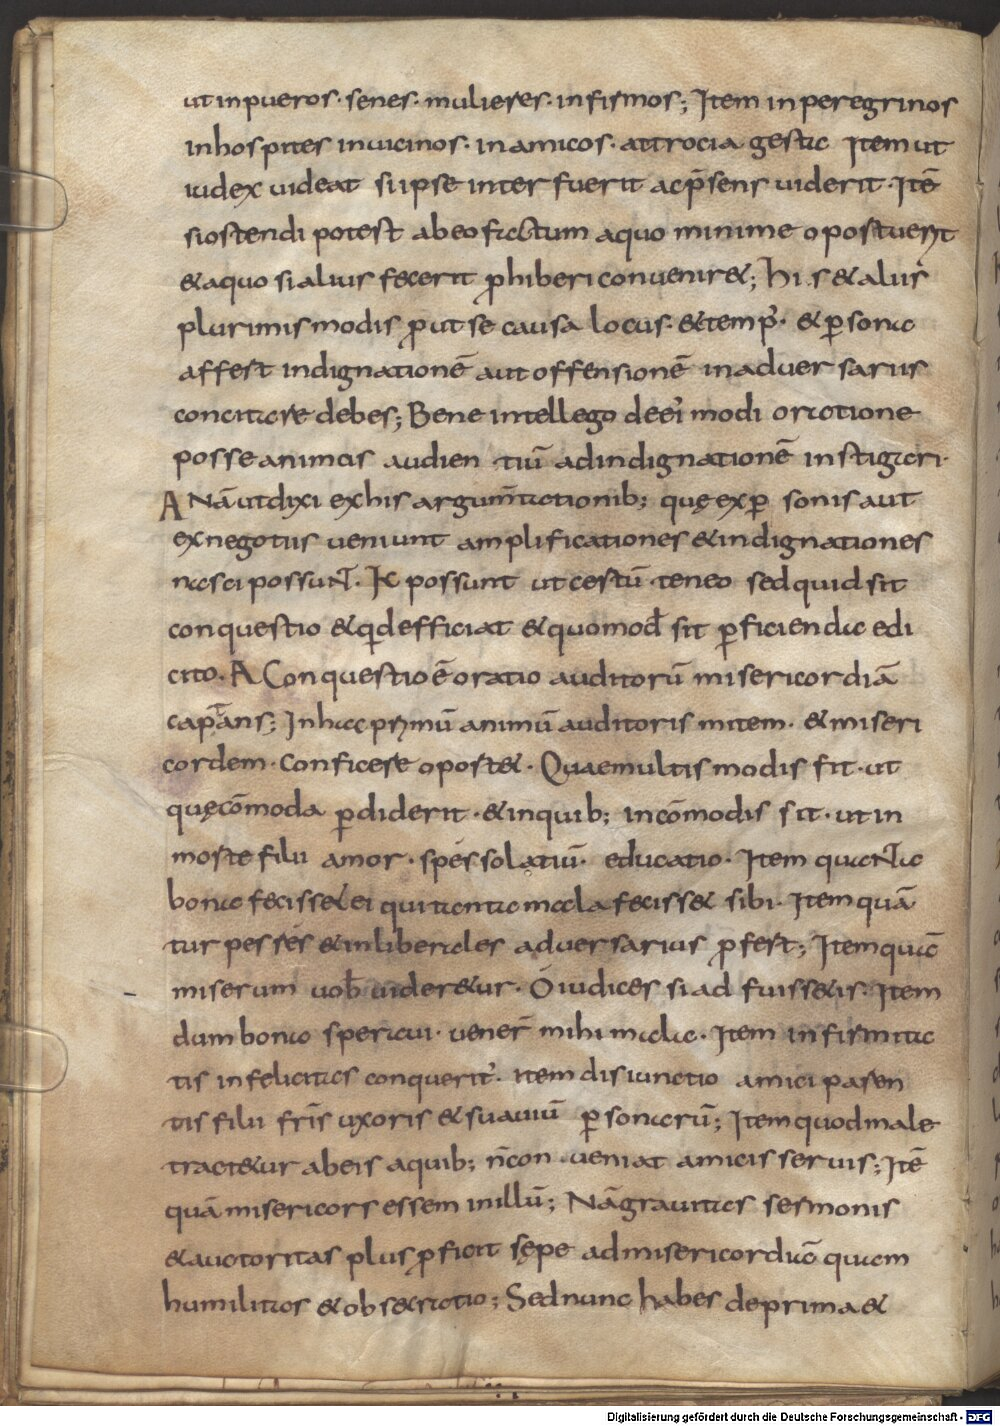 ut inpueros · senes · mulieres · infirmos; Item inperegrinos
inhospites inuicinos · inamicos · attrocia gesta Item ut
iudex uideat si ipse interfuerit ac p̄sens uiderit · Itē
siostendi potest abeo factum aquo minime oportuerit
&aquo si alius fecerit p̄hiberi conuenir&; His & aliis
plurimis modis p̄ut se causa locus · & temp' · & p̱sona
affert indignationē aut offensionē inaduersariis
concitare debes; Bene intellego deei' modi oratione
posse animas audientiū adindignationē instigari ·
A Nā ut dixi exhis argum̄tationib; quę exp̱sonis aut
exnegotiis ueniunt amplificationes &indignationes
nasci possuNT · K possunt ut certū teneo sed quid sit
conquestio & qd efficiat & quomod̄ sit p̱ficienda edi
cito · A Conquestio ē oratio auditorū misericordiā
captans; Inhac prymū animū auditoris mitem · & miseri
cordem · conficere oport& · Quae multis modis fit · ut
quęcōmoda p̱diderit · & inquib; incōmodis sit · ut in
morte filii amor · spes solatiū · educatio · Item quaNta
bona fecisset ei qui tanta mala feciss& sibi · Item quā
turpes res & inliberales aduersarius p̄fert; Item quā
miserum uob̄ uider&ur · O iudices si ad fuiss&is · Item
dum bona speraui · uener̄ mihi mala · Item infirmita
tis infelicitas conquerit' · item disiunctio amici paren
tis filii fr̄is uxoris & suauiū p̱sonarū; Item quod male
tract&ur abeis aquib; n̄con · ueniat amicis seruis; Itē
quā misericors essem inillū; Nā grauitas sermonis
& auctoritas plus p̄ficit sępe admisericordiā quam
humilitas & obsecratio; Sed nunc habes deprima &
Digitalisierung gefördert durch die Deutsche Forschungsgemeinschaft - DFG